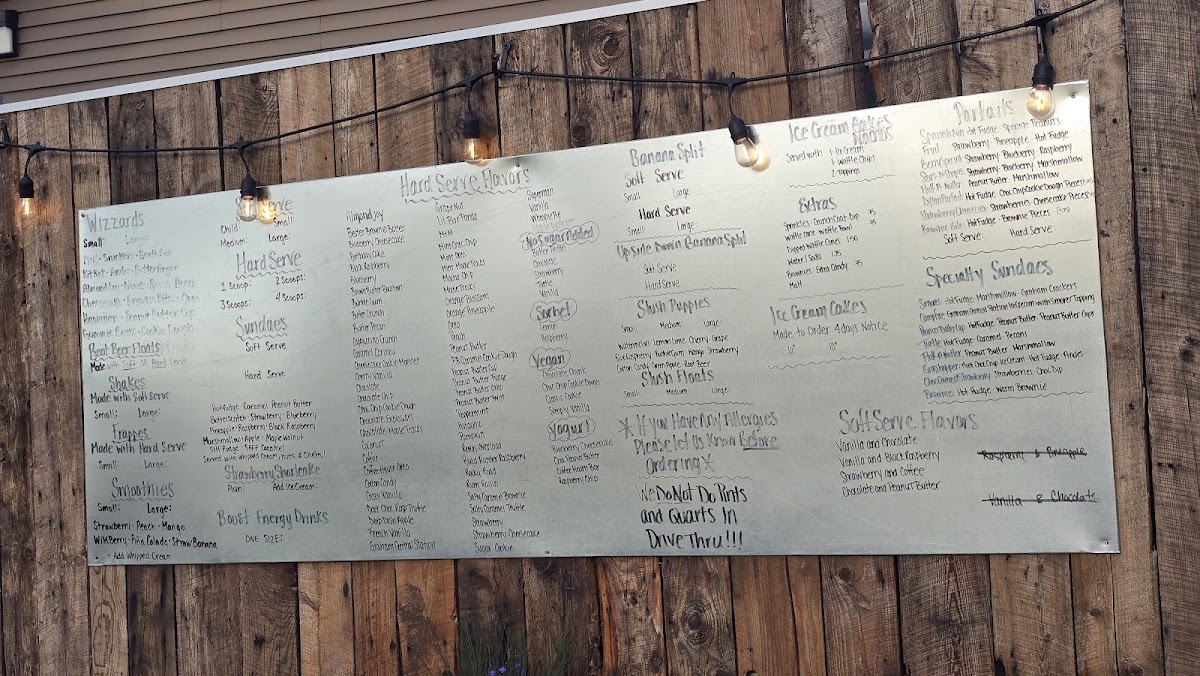 Wizzards
Small: Large:
Root Beer Floats
Made with Soft or Hard Serve
Shakes
Made with Soft Serve
Small: Large:
Frappes
Made with Hard Serve
Small: Large:
Smoothies
Small: Large:
Strawberry · Peach · Mango
Wild Berry · Piña Colada · Straw Banana
+ Add Whipped Cream
Child: Small:
Medium: Large:
Hard Serve
1 Scoop: 2 Scoops:
3 Scoops: 4 Scoops:
Sundaes
Soft Serve
Hard Serve
Hot Fudge · Caramel · Peanut Butter
Butterscotch · Strawberry · Blueberry
Pineapple · Raspberry · Black Raspberry
Marshmallow · Apple · Maple Walnut
Served with Whipped Cream, Nuts, & Cherry!
Strawberry Shortcake
Plain: Add Ice Cream:
Boost Energy Drinks
One Size:
Hard Serve Flavors
Almond Joy
Blueberry Cheesecake
Birthday Cake
Black Raspberry
Blueberry
Bubble Gum
Butter Crunch
Butter Pecan
Cappuccino Crunch
Caramel Cannoli
Cherry Vanilla
Chocolate
Chocolate Chip
Choc Chip Cookie Dough
Chocolate Explosion
Chocolate Moose Tracks
Coconut
Coffee
Coffee House Oreo
Cotton Candy
Crazy Vanilla
Deep Dish Apple
French Vanilla
Graham Central Station
Grape Nut
M+M
Mint Choc Chip
Mint Oreo
Mocha Chip
Moose Tracks
Orange Blossom
Orange Pineapple
Oreo
Peach
Peanut Butter
Peanut Butter Cup
Peanut Butter Fudge
Peanut Butter Oreo
Peppermint
Pistachio
Pumpkin
Rocky Road
Rum Raisin
Salty Caramel Brownie
Salty Caramel Truffle
Strawberry
Strawberry Cheesecake
Sugar Cookie
Superman
Vanilla
No Sugar Added
Butter Pecan
Chocolate
Strawberry
Turtle
Vanilla
Sorbet
Lemon
Raspberry
Vegan
Chocolate Chunk
Simply Vanilla
Yogurt
Blueberry Cheesecake
Choc Peanut Butter
Coffee Heath Bar
Raspberry Chip
Banana Split
Soft Serve
Small: Large:
Hard Serve
Small: Large:
Upside Down Banana Split
Soft Serve
Hard Serve
Slush Puppies
Small: Medium: Large:
Watermelon · Lemon Lime · Cherry · Grape
Blue Raspberry · Bubble Gum · Mango · Strawberry
Cotton Candy · Green Apple · Root Beer
Slush Floats
Small: Medium: Large:
* If You Have Any Allergies
Please let us Know Before
Ordering *
We Do Not Do Pints
and Quarts In
Drive Thru!!!
Ice Cream
Nachos
Served with 1-Ice Cream
1-Waffle Chips
2-Toppings
Extras
Waffle Cone · Waffle Bowl .75
Dipped Waffle Cones 1.50
Water / Soda 1.75
Brownies · Extra Candy .75
Malt
Ice Cream Cakes
Made to Order 4 days Notice
Parfaits
Spanish Nut: Hot Fudge · Spanish Peanuts
Fruit: Strawberry · Pineapple · Hot Fudge
Berry Sprout: Strawberry · Blueberry · Raspberry
Stars & Stripes: Strawberry · Blueberry · Marshmallow
Fluff-A-Nutter: Peanut Butter · Marshmallow
Dylan Parfait: Hot Fudge · Choc Chip Cookie Dough Pieces
Strawberry Cheesecake: Strawberries · Cheesecake Pieces
Hot Fudge · Brownie Pieces
Soft Serve: Hard Serve:
Specialty Sundaes
Smores: Hot Fudge · Marshmallow · Graham Crackers
Campfire: Graham Central Station Ice cream with Smores Topping
Peanut Butter Cup: Hot Fudge · Peanut Butter · Peanut Butter Cups
Turtle: Hot Fudge · Caramel · Pecans
Fluff-A-Nutter: Peanut Butter · Marshmallow
Grasshopper: Mint Choc Chip Ice Cream · Hot Fudge · Andes
Choc Covered Strawberry: Strawberries · Choc Dip
Brownie: Hot Fudge · Warm Brownie
Soft Serve Flavors
Vanilla and Chocolate
Vanilla and Black Raspberry
Strawberry and Coffee
Chocolate and Peanut Butter
Raspberry & Pineapple
Vanilla & Chocolate